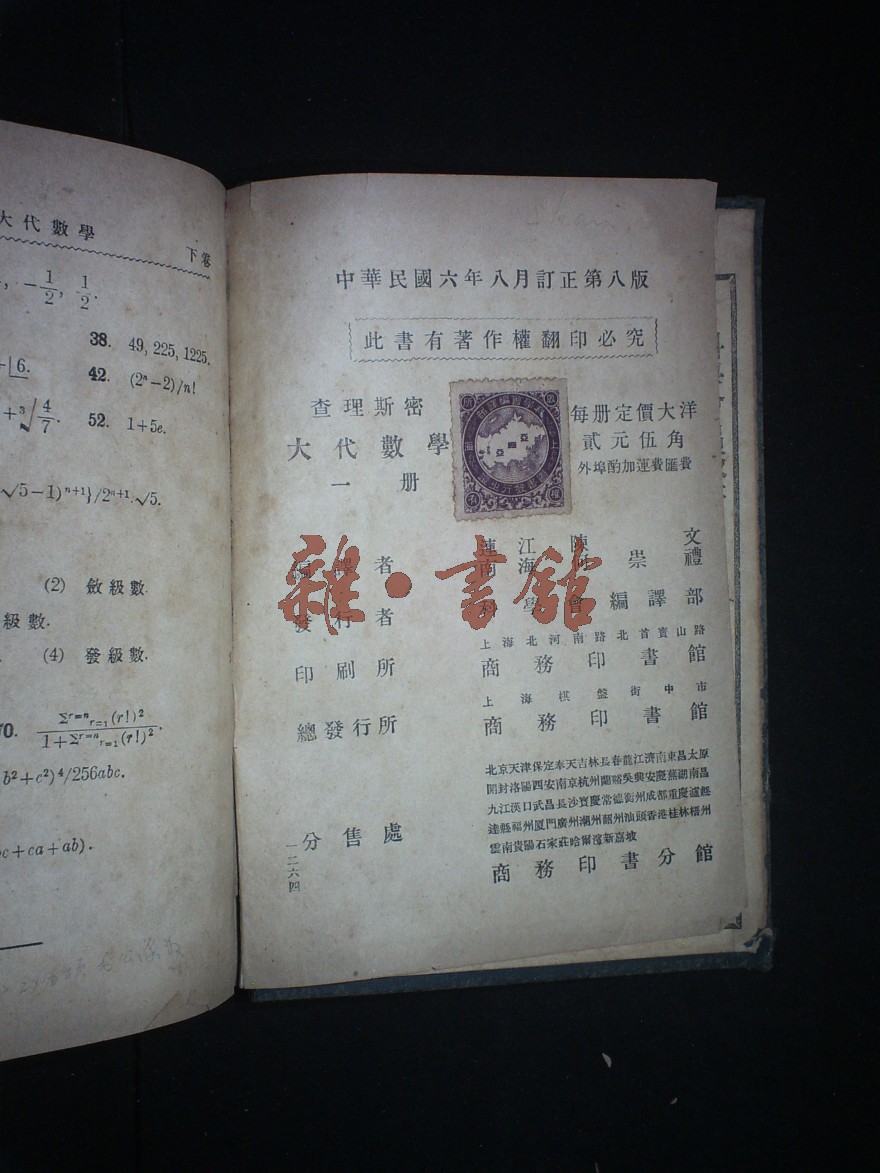 大代數學
下卷
-1/2, 1/2.
38. 49, 225, 1225.
6.
42. (2ⁿ-2)/n!
+∛4/7.
52. 1+5e.
√5-1)ⁿ⁺¹}/2ⁿ⁺¹.√5.
(2) 斂級數.
級數.
(4) 發級數.
70. Σʳ⁼ⁿᵣ₌₁(r!)²/1+Σʳ⁼ⁿᵣ₌₁(r!)².
b²+c²)⁴/256abc.
c+ca+ab).
中華民國六年八月訂正第八版
此書有著作權翻印必究
查理斯密
大代數學
一册
每册定價大洋
貳元伍角
外埠酌加運費匯費
編譯者
連江陳文
南海何崇禮
發行者
科學會編譯部
上海北河南路北首寶山路
印刷所
商務印書館
上海棋盤街中市
總發行所
商務印書館
北京天津保定奉天吉林長春龍江濟南東昌太原
開封洛陽西安南京杭州蘭谿吳興安慶蕪湖南昌
九江漢口武昌長沙寶慶常德衡州成都重慶瀘縣
達縣福州厦門廣州潮州韶州汕頭香港桂林梧州
雲南貴陽石家莊哈爾濱新嘉坡
分售處
商務印書分館
一二六四
雜·書館